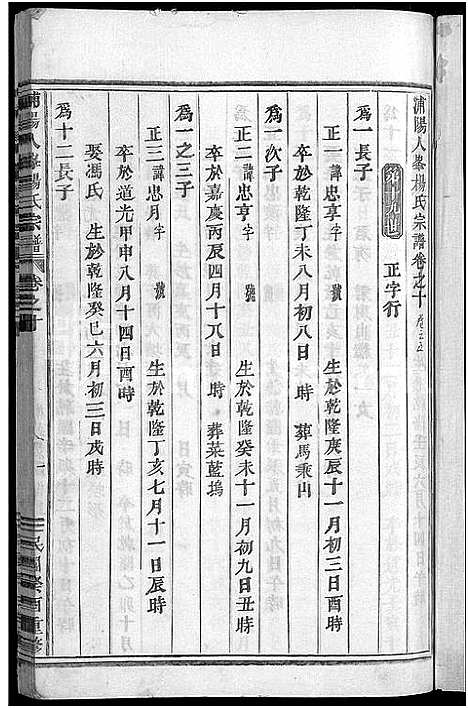 浦陽人峯楊氏宗譜卷之十
正字行
爲一長子
正一諱忠享字 號 生於乾隆庚辰十一月初三日酉時
卒於乾隆丁未八月初八日 時 葬馬乘山
爲一次子
正二諱忠亨字 號 生於乾隆癸未十一月初九日丑時
卒於嘉慶丙辰四月十八日 時 葬菜藍塢
爲一之三子
正三諱忠月字 號 生於乾隆丁亥七月十一日辰時
卒於道光甲申八月十四日酉時
娶馮氏 生於乾隆癸巳六月初三日戌時
爲十二長子
浦陽人峯楊氏宗譜
卷之十
民國癸酉重修